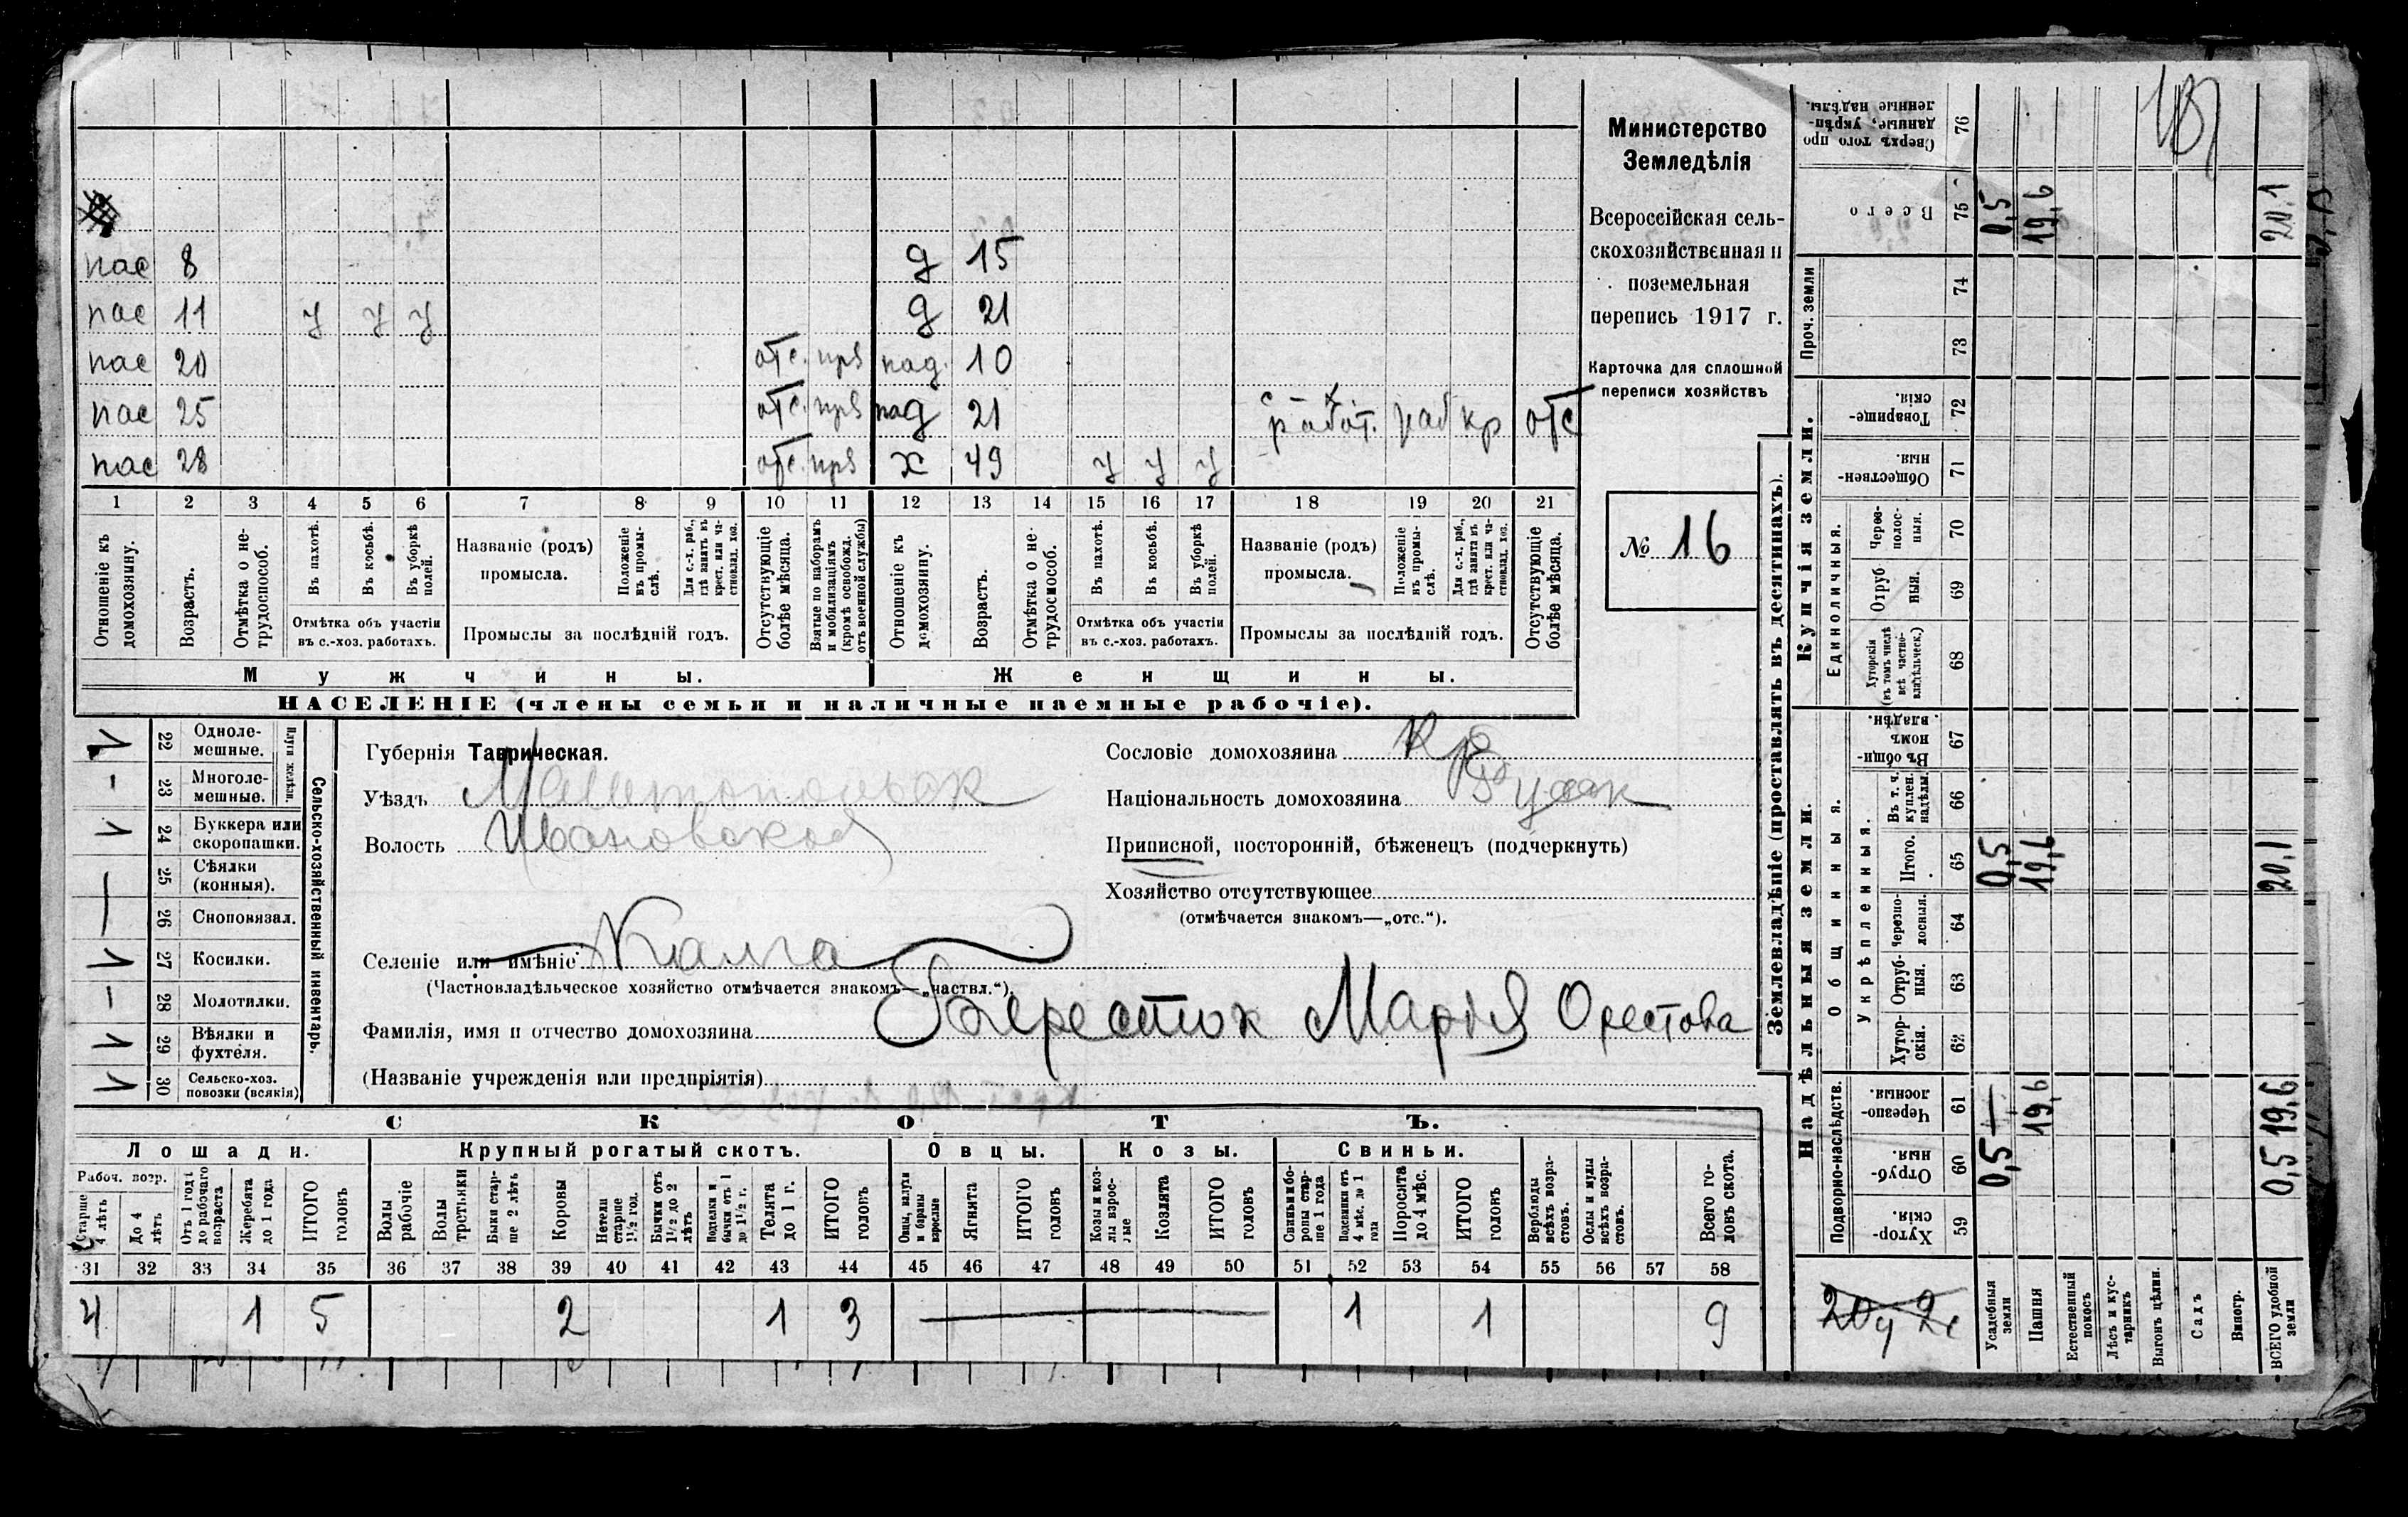 пас 8 д 15
пас 11 у у у д 21
пас 20 отс. прз пад. 10
пас 25 отс. прз пад 21 работ. раб кр отс
пас 28 отс. прз х 49 у у у
1 2 3 4 5 6 7 8 9 10 11 12 13 14 15 16 17 18 19 20 21
Отношеніе къ домохозяину.
Возрастъ.
Отмѣтка о не-
трудоспособ.
Въ пахотѣ.
Въ косьбѣ.
Въ уборкѣ
полей.
Отмѣтка объ участіи
въ с.-хоз. работахъ.
Названіе (родъ)
промысла.
Положеніе
въ промы-
слѣ.
Для с.-х. раб.,
гдѣ занятъ въ
крест. или ча-
стновлад. хоз.
Промыслы за послѣдній годъ.
Отсутствующіе
болѣе мѣсяца.
Взятые по наборамъ
и мобилизаціямъ
(кромѣ освобожд.
отъ военной службы)
Отношеніе къ
домохозяину.
Возрастъ.
Отмѣтка о не-
трудоспособ.
Въ пахотѣ.
Въ косьбѣ.
Въ уборкѣ
полей.
Отмѣтка объ участіи
въ с.-хоз. работахъ.
Названіе (родъ)
промысла.
Положеніе
въ промы-
слѣ.
Для с.-х. раб.,
гдѣ занята въ
крест. или ча-
стновлад. хоз.
Промыслы за послѣдній годъ.
Отсутствующіе
болѣе мѣсяца.
Мужчины. Женщины.
НАСЕЛЕНІЕ (члены семьи и наличные наемные рабочіе).
Министерство
Земледѣлія
Всероссійская сель-
скохозяйственная и
поземельная
перепись 1917 г.
Карточка для сплошной
переписи хозяйствъ
№ 16
22 Одноле-
мешные.
23 Многоле-
мешные.
Плуги желѣзн.
24 Буккера или
скоропашки.
25 Сѣялки
(конныя).
26 Сноповязал.
27 Косилки.
28 Молотилки.
29 Вѣялки и
фухтеля.
30 Сельско-хоз.
повозки (всякія)
Сельско-хозяйственный инвентарь.
Губернія Таврическая.
Уѣздъ Мелитопольск
Волость Ивановской
Селеніе или имѣніе Калга
(Частновладѣльческое хозяйство отмѣчается знакомъ—„частвл.“).
Сословіе домохозяина Кр
Національность домохозяина
Приписной, посторонній, бѣженецъ (подчеркнуть)
Хозяйство отсутствующее
(отмѣчается знакомъ—„отс.“).
Фамилія, имя и отчество домохозяина Берестюк Марія Орестова
(Названіе учрежденія или предпріятія)
СКОТЪ.
Лошади. Крупный рогатый скотъ. Овцы. Козы. Свиньи.
Рабоч. возр.
Старше
4 лѣтъ
До 4
лѣтъ
Отъ 1 года
до рабочаго
возраста
Жеребята
до 1 года
ИТОГО
головъ
Волы
рабочіе
Волы
третьяки
Быки стар-
ше 2 лѣтъ
Коровы
Нетели
старше
1½ год.
Бычки отъ
1½ до 2
лѣтъ
Подтелки и
бычки отъ 1
до 1½ г.
Телята
до 1 г.
ИТОГО
головъ
Овцы, валухи
и бараны
взрослые
Ягнята
ИТОГО
головъ
Козы и коз-
лы взрос-
лые
Козлята
ИТОГО
головъ
Свиньи и бо-
ровы стар-
ше 1 года
Подсвинки отъ
4 мѣс. до 1
года
Поросята
до 4 мѣс.
ИТОГО
головъ
Верблюды
всѣхъ возра-
стовъ.
Ослы и мулы
всѣхъ возра-
стовъ.
Всего го-
ловъ скота.
31 32 33 34 35 36 37 38 39 40 41 42 43 44 45 46 47 48 49 50 51 52 53 54 55 56 57 58
4 1 5 2 1 3 1 1 9
Землевладѣніе (проставлять въ десятинахъ).
Надѣльныя земли. Купчія земли.
Подворно-наслѣдств. Общинныя. Единоличныя. Проч. земли
Укрѣпленныя.
Хутор-
скія. 59
Отруб-
ныя. 60
Черезпо-
лосныя. 61
Хутор-
скія. 62
Отруб-
ныя. 63
Черезпо-
лосныя. 64
Итого. 65
Въ т. ч.
куплен.
надѣлы. 66
Въ общин-
номъ
владѣн. 67
Хуторскія
(въ томъ числѣ
всѣ частно-
владѣльческ.) 68
Отруб
ныя. 69
Через-
полос-
ныя. 70
Обществен-
ныя. 71
Товарище-
скія. 72
73
74
Всего 75
Сверхъ того про
данные, укрѣп-
ленные надѣлы. 76
Усадебныя
земли 0,5 — 0,5 0,5
Пашня 19,6 19,6 19,6
Естественный
покосъ
Лѣсъ и кус-
тарникъ
Выгонъ цѣлин.
Садъ
Виногр.
ВСЕГО удобной
земли 0,5 19,6 20,1 20,1